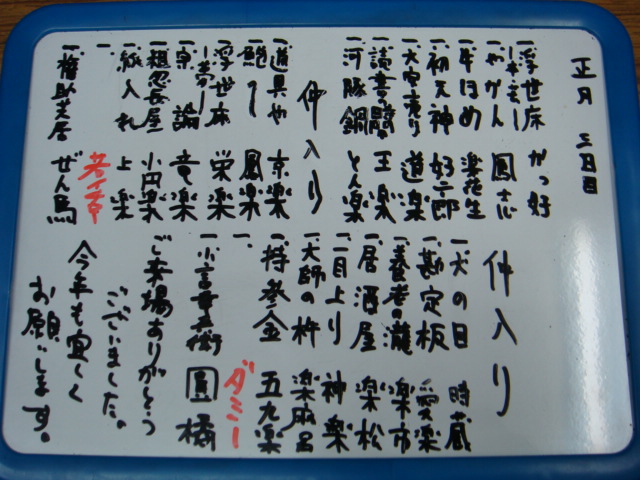 正月 三日目
一、浮世床 かつ好
一、やかん 鳳志
一、牛ほめ 楽花生
一、初天神 好二郎
一、大安売り 道楽
一、読書の時間 王楽
一、河豚鍋 とん楽
仲入り
一、道具や 京楽
一、鮑のし 鳳楽
一、浮世床 栄楽
一、宗論 竜楽
一、粗忽長屋 小円楽
一、紙入れ 上楽
一、
一、権助芝居 ぜん馬
仲入り
一、犬の目 時蔵
一、勘定板 愛楽
一、養老の瀧 楽市
一、居酒屋 楽松
上り 神楽
一、大師の杵 楽麻呂
一、持参金 五九楽
一、 ダミー
一、小言幸兵衛 圓橘
ご来場ありがとう
ございました。
今年も宜しく
お願いします。